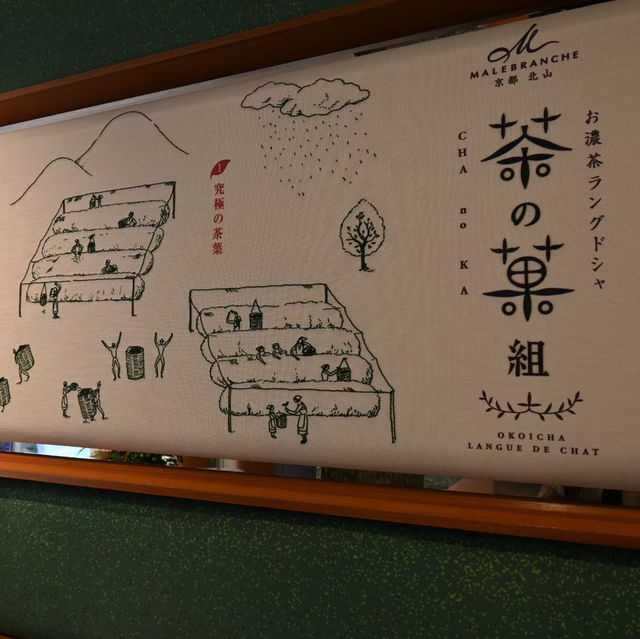 MALEBRANCHE
京都 北山
お濃茶ラングドシャ
茶の菓
CHA no KA
組
OKOICHA
LANGUE DE CHAT
1
究極の茶葉